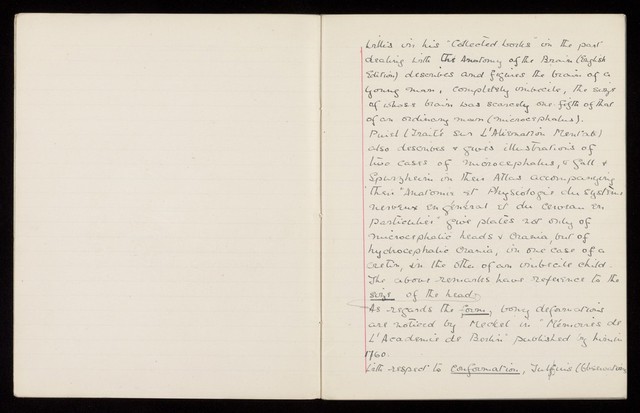 Willis in his "Collected Works" in the part
dealing with the Anatomy of the Brain (English
Edition) describes and figures the brain of a
young man, completely imbecile, the size
of whose brain was scarcely one-fifth of that
of an ordinary man (microcephalus).
Pinel (Traité sur L'Aliénation Mentale)
also describes & gives illustrations of
two cases of microcephalus, & Gall &
Spurzheim in their Atlas accompanying
their "Anatomie et Physiologie du Système
nerveux en général et du Cerveau en
particulier" give plates not only of
microcephalic heads & Crania, but of
hydrocephalic Crania, in one case of a
cretin, in the other of an imbecile child.
The above remarks have reference to the
size of the head.
As regards the form, bony deformations
are noticed by Meckel in "Mémoires de
L'Academie de Berlin" published by
1760.
With respect to Conformation, Tulpius (Observation